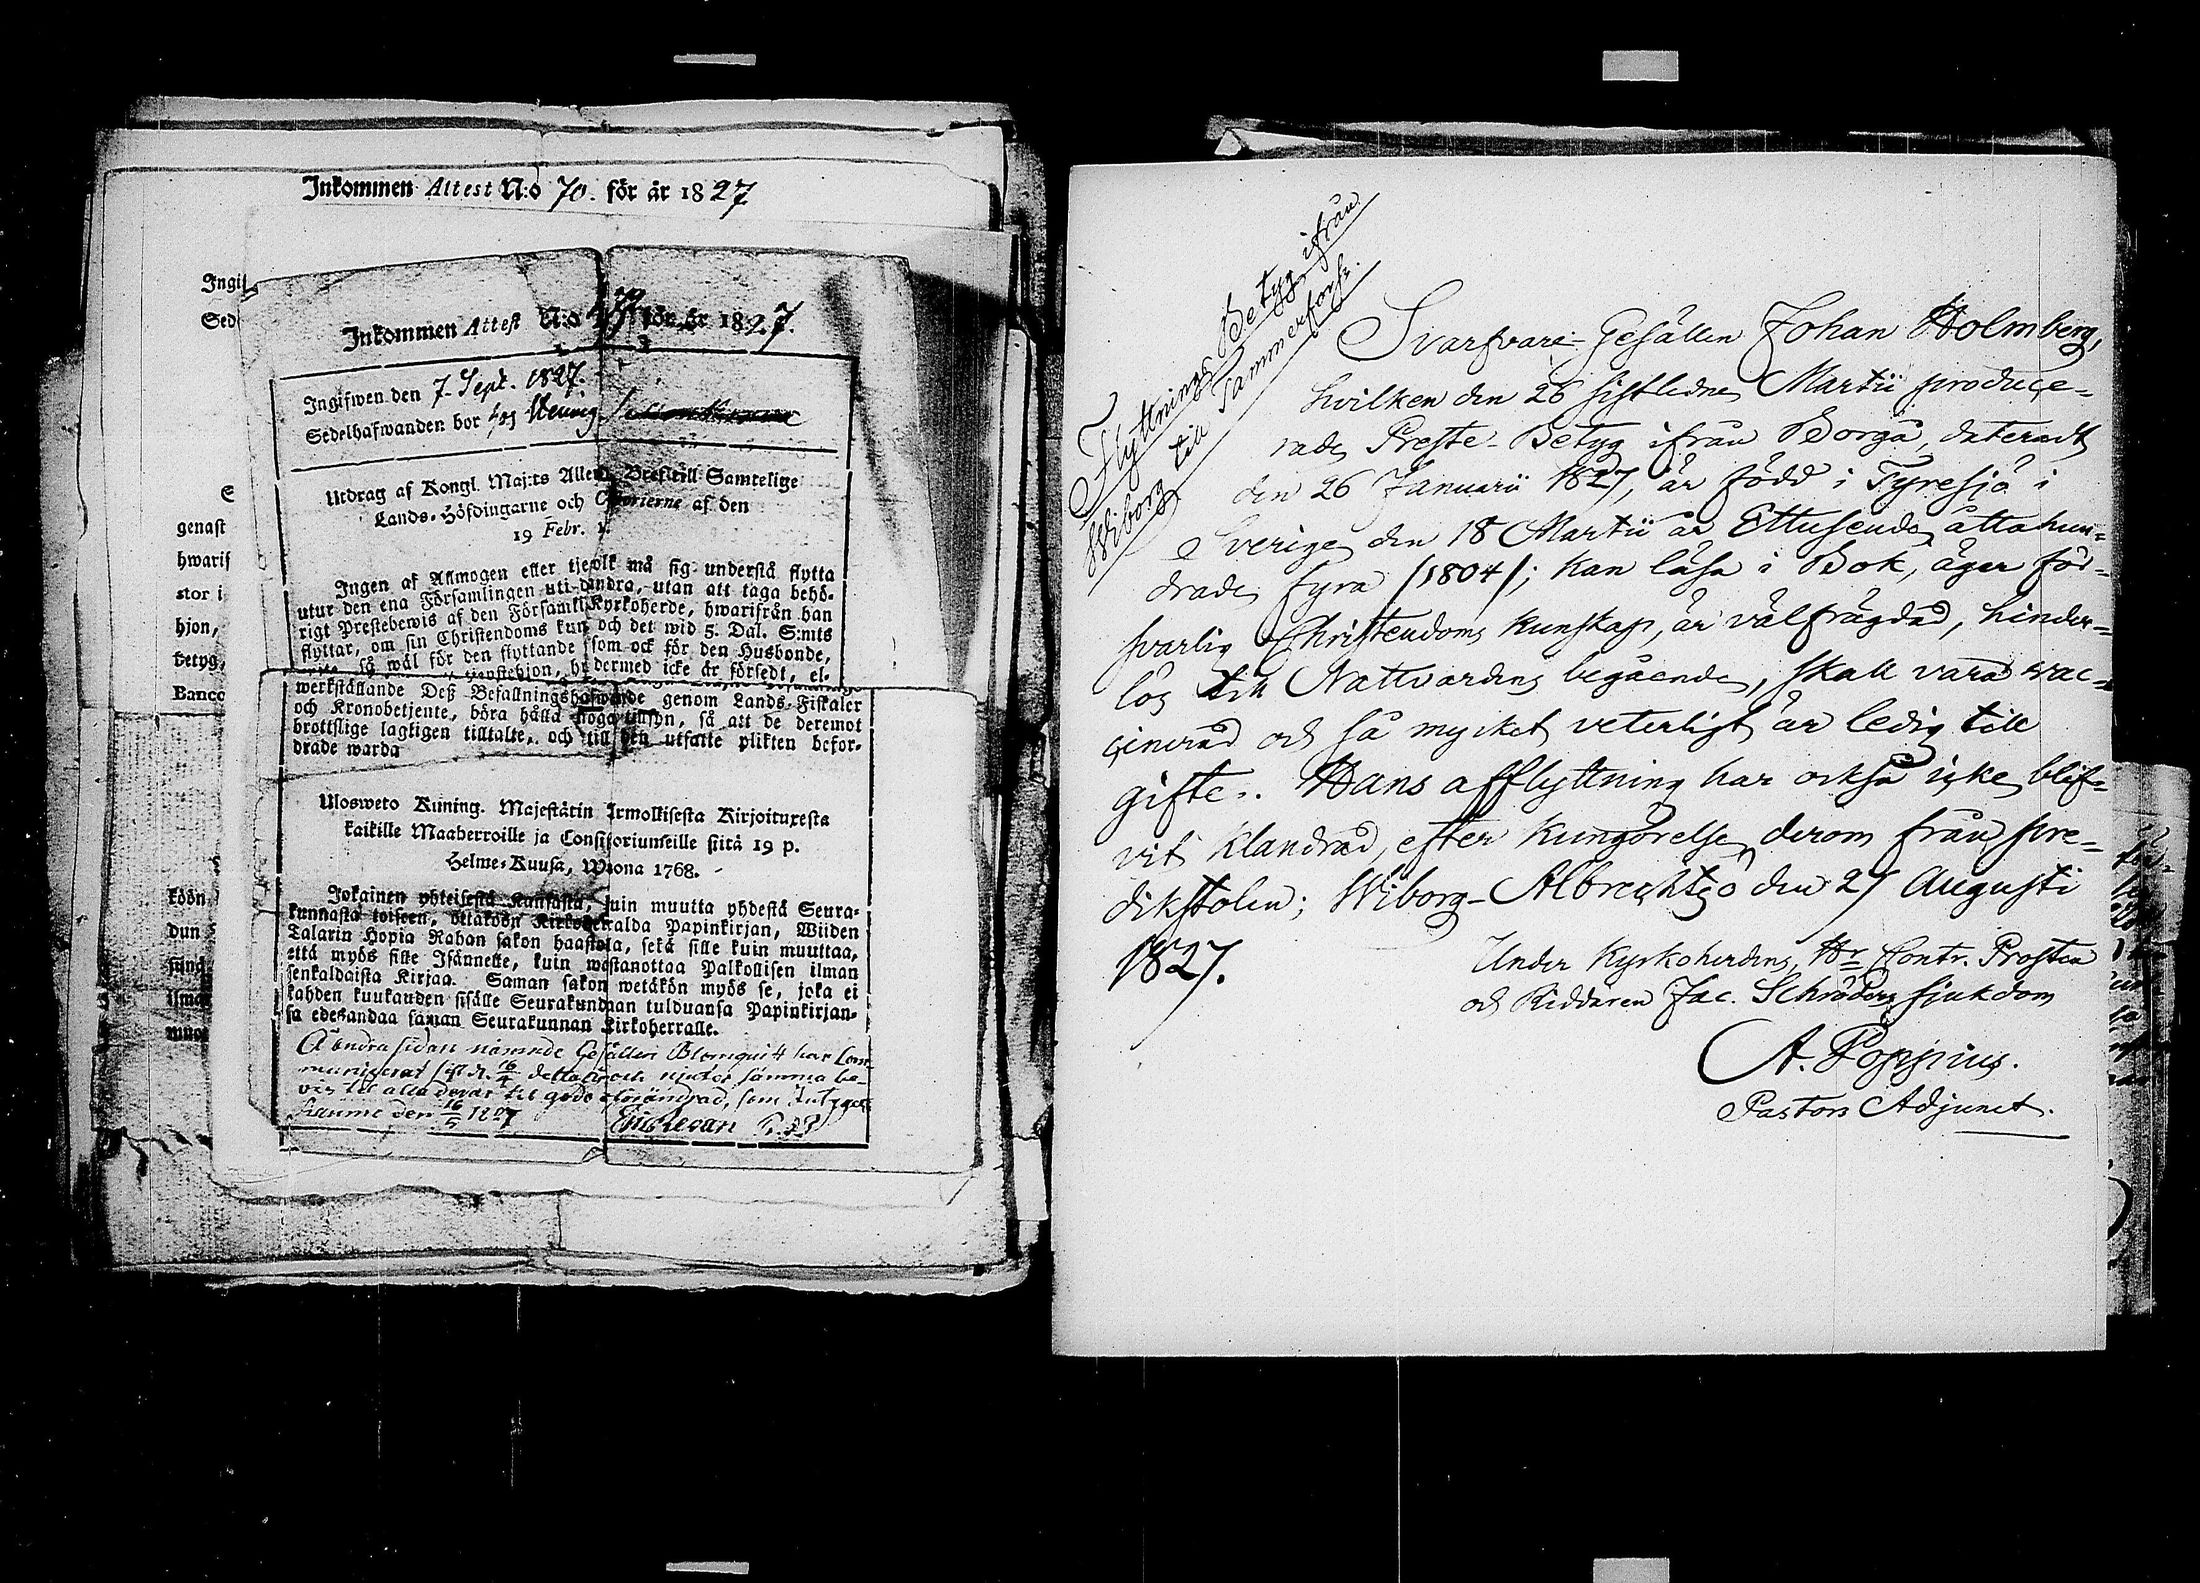 Inkommen Attest N:o 70. för år 1827
Ingif
Sed
genast
hwarif
stor i
hjon,
betyg,
Banco
köön
dun
Inkommen Attest N:o för år 1827.
Ingifwen den 7 Sept. 1827.
Sedelhafwanden bor hos
Utdrag af Kongl. Maj:ts Bref till Samtelige
Lands-Höfdingarne och af den
19 Febr.
Ingen af Allmogen eller må sig understå flytta
utur den ena Församlingen uti andra, utan att taga behö-
rigt Prestebewis af den Kyrkoherde, hwarifrån han
flyttar, om sin Christendoms och det wid 5. Dal. S:mts
så wäl för den flyttande som ock för den Husbonde,
dermed icke är försedt, el-
werkställande Deß Befallningshafwande genom Lands-Fiskaler
och Kronobetjente, böra hålla noga tillsyn, så att de deremot
brottslige lagligen tilltalte, och till den utsatte plikten befor-
drade warda
Ulosweto Kuning. Majestätin Armollisesta Kirjoituxesta
kaikille Maaherroille ja Consistoriumeille siitä 19 p.
Helme-Kuusa, Wuonna 1768.
Jokainen yhteisestä Kansasta, kuin muutta yhdestä Seura-
kunnasta toiseen, ottaköön Kirkoherralda Papinkirjan, Wiiden
Talarin Hopia Rahan sakon haastolla, sekä sille kuin muuttaa,
että myös sille Isännelle, kuin wastanottaa Palkollisen ilman
senkaldaista Kirjaa. Saman sakon wetäkön myös se, joka ei
kahden kuukauden sisälle Seurakundaan tulduansa Papinkirjan-
sa edesandaa saman Seurakunnan Kirkoherralle.
Å andra sidan nämnde Gesällen Blomquist har Com-
municerat sist d. 16/4 detta år och njuter samma be-
vis til alla delar til godo oförändrad, som intygas
Raumo den 16/5 1827
Flyttnings Betyg ifrån
Wiborg till Tammerfors.
Svarfvare-Gesällen Johan Holmberg,
hvilken den 26 sistledne Martii produce-
rade Preste-Betyg ifrån Borgå, dateradt
den 26 Januarii 1827, är född i Tyresjö i
Sverige den 18 Martii år Ettusende åttahun-
drade fyra /1804/; kan läsa i Bok, äger för-
svarlig Christendoms kunskap, är välfrägdad, hinder-
lös till Nattvardens begående, skall vara vac-
cinerad och så mycket veterligt är ledig till
gifte. Hans afflyttning har också icke blif-
vit klandrad, efter kungörelse derom från pre-
dikstolen; Wiborg-Albrechtsö den 27 Augusti
1827.
Under Kyrkoherdens, Hr Contr. Prosten
och Riddaren Jac. Schröders sjukdom
A. Poppius.
Pastors Adjunct.